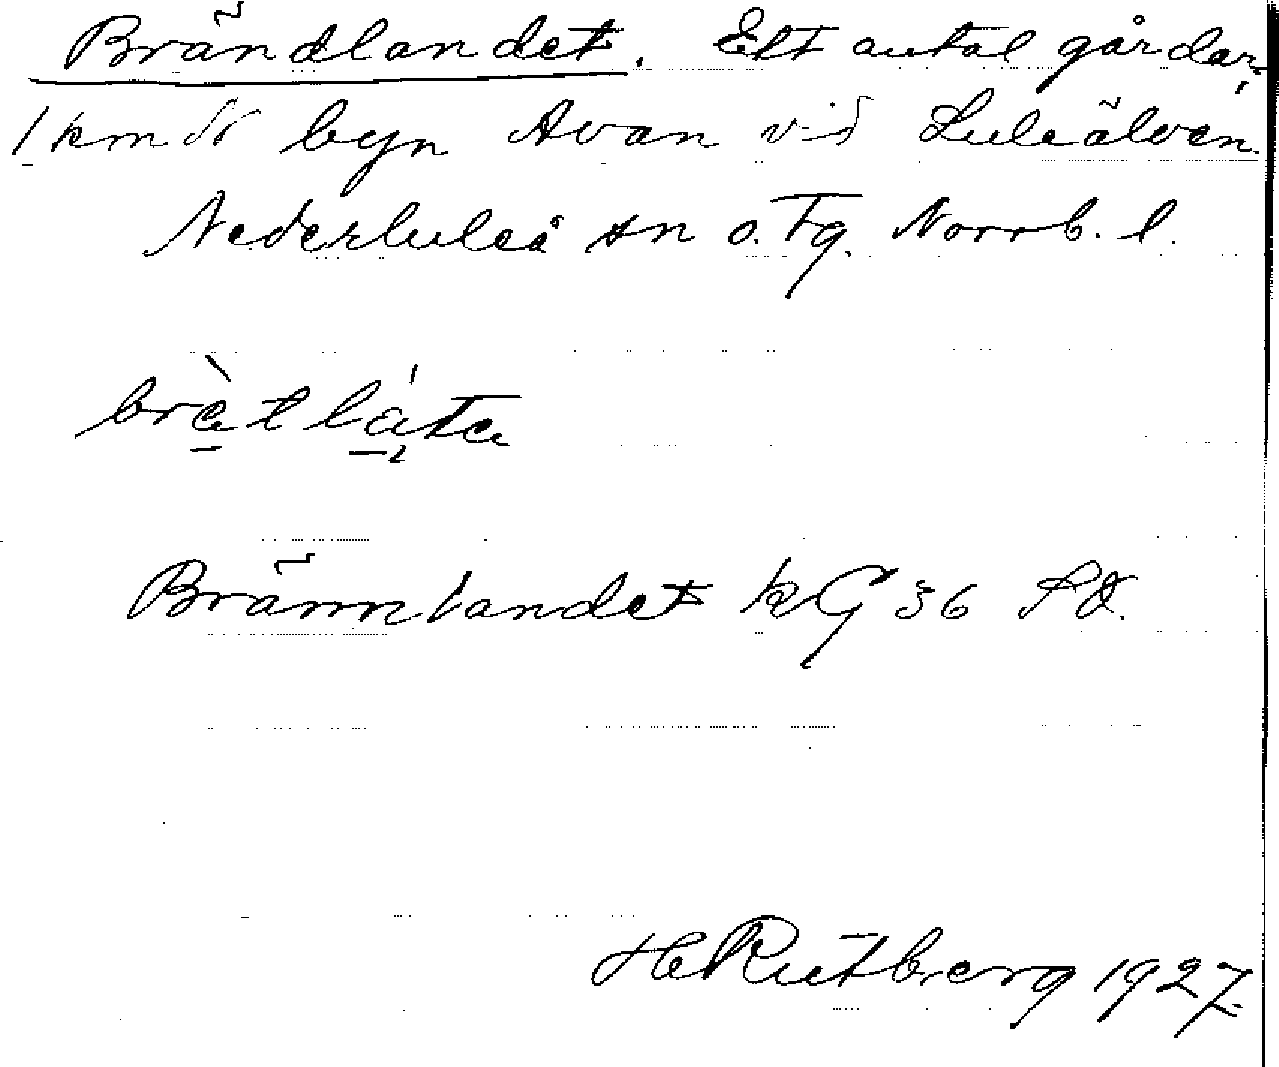 Brändlandet. Ett antal gårdar,
1 km N byn Avan vid Luleälven.
Nederluleå sn o. Tg. Norrb. l.
brètlá̱ta
Brännlandet kG 36 SV.
H Rutberg 1927.